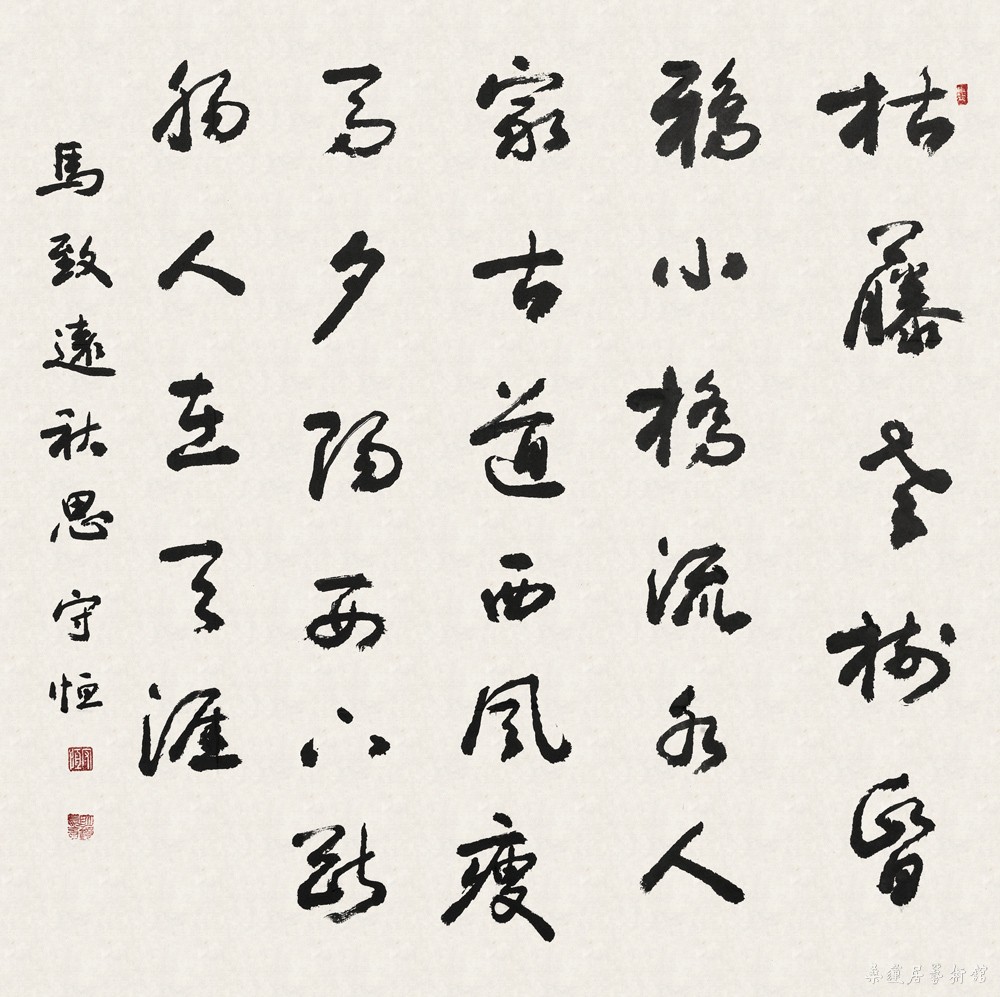 枯藤老樹昏
鴉小橋流水人
家古道西風瘦
馬夕陽西下斷
腸人在天涯
馬致遠秋思 守恒
桑蓮居藝術館